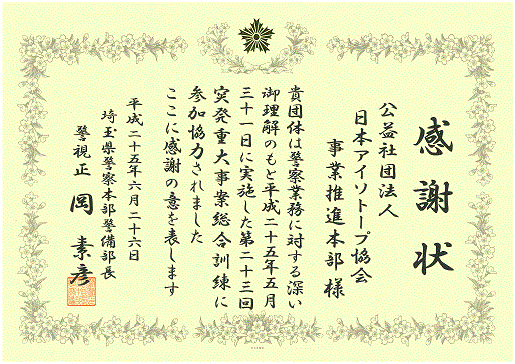 感謝状
公益社団法人
日本アイソトープ協会
事業推進本部 様
貴団体は警察業務に対する深い
御理解のもと平成二十五年五月
三十一日に実施した第二十三回
突発重大事案総合訓練に
参加協力されました
ここに感謝の意を表します
平成二十五年六月二十六日
埼玉県警察本部警備部長
警視正 岡 素彦